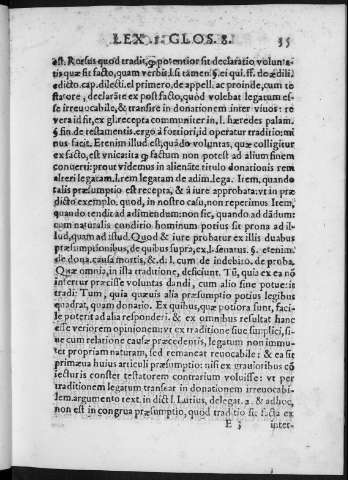 LEX .1. GLOS. 8. 35
est. Rorsus quod tradit, q̃ potentior sit declaratio volunta-
tis quæ sit facto, quam verbis. l. si tamen §. ei qui. ff. de ædili.
edicto. cap. dilecti. el primero, de appell. ac proinde, cum te
statore, declarãte ex post facto, quòd volebat legatum es-
se irreuocabile, & transire in donationem inter viuos: re
vera id sit, ex gl. recepta communiter in, l. hæredes palam.
§. fin. de testamentis. ergo à fortiori, id operatur traditio: mi
nus facit. Etenim illud est, quãdo voluntas, quæ colligitur
ex facto, est vnica: ita q̃ factum non potest ad alium finem
conuerti: prout videmus in alienãte titulo donationis rem
alteri legatam. l. rem legatam de adim. lega. Item, quando
talis præsumptio est recepta, & à iure approbata: vt in præ
dicto exemplo. quod, in nostro casu, non reperimus. Item,
quando tendit ad adimendum: non sic, quando ad dãdum:
cum naturalis conditio hominum potius sit prona ad il-
lud, quam ad istud. Quod & iure probatur ex illis duabus
præsumptionibus, de quibus supra, ex. l. senatus. §. etenim.
de dona. causa mortis, & d. l. cum de indebito. de proba.
Quæ omnia, in ista traditione, deficiunt. Tũ, quia ex ea nõ
infertur præcisse voluntas dandi, cum alio fine potue: it
tradi: Tum, quia quæuis alia præsumptio potius legibus
quadrat, quam donatio. Ex quibus, quæ potiora sunt, faci-
le poterit ad alia responderi. & ex omnibus resultat hanc
esse veriorem opinionem: vt ex traditione siue simplici, si-
ue cum relatione causæ præcedentis, legatum non immu-
tet propriam naturam, sed remaneat reuocabile: & ea sit
primæua huius articuli præsumptio: nisi ex grauioribus cõ
iecturis constet testatorem contrarium voluisse: vt per
traditionem legatum transeat in donationem irreuocabi-
lem. argumento text. in dict. l. Lutius, de legat. 2. & adhoc,
non est in congrua præsumptio, quod traditio sit facta ex
E 3 inter-